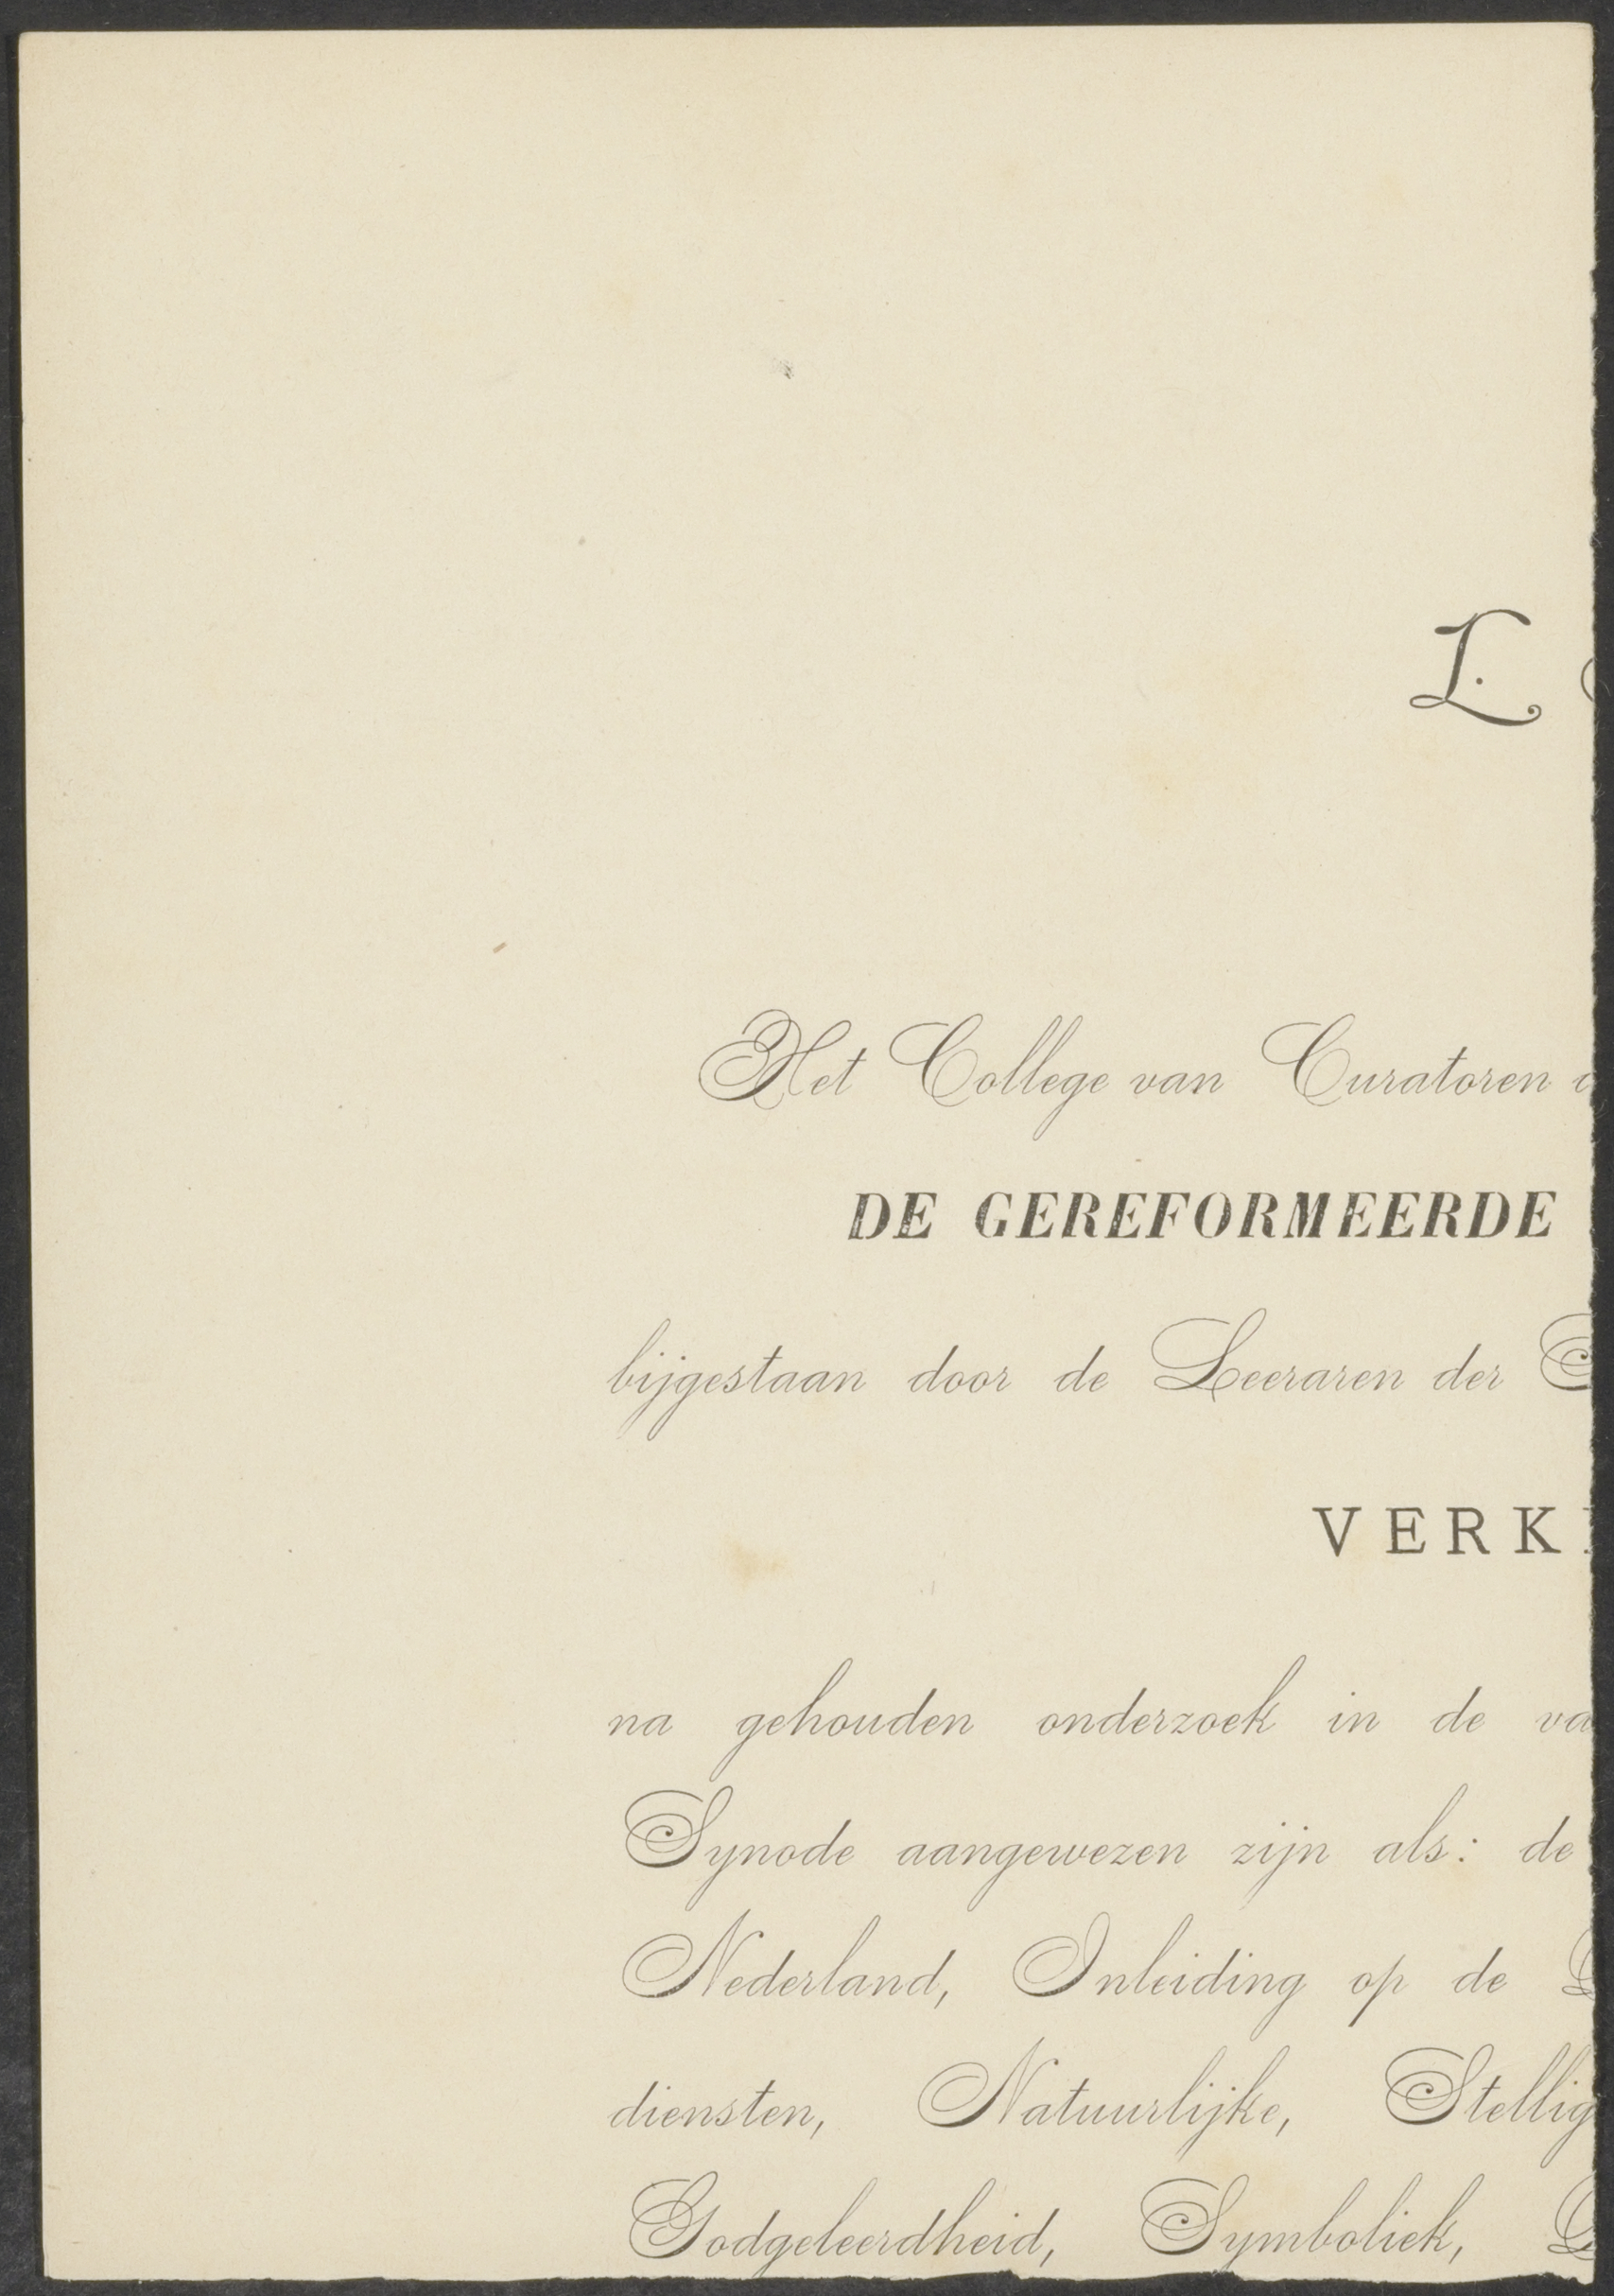 L.
Het College van Curatoren
DE GEREFORMEERDE
bijgestaan door de Leeraren der
VERK
na gehouden onderzoek in de va
Synode aangewezen zijn als: de
Nederland, Inleiding op de
diensten, Natuurlijke, Stellig
Godgeleerdheid, Symboliek,